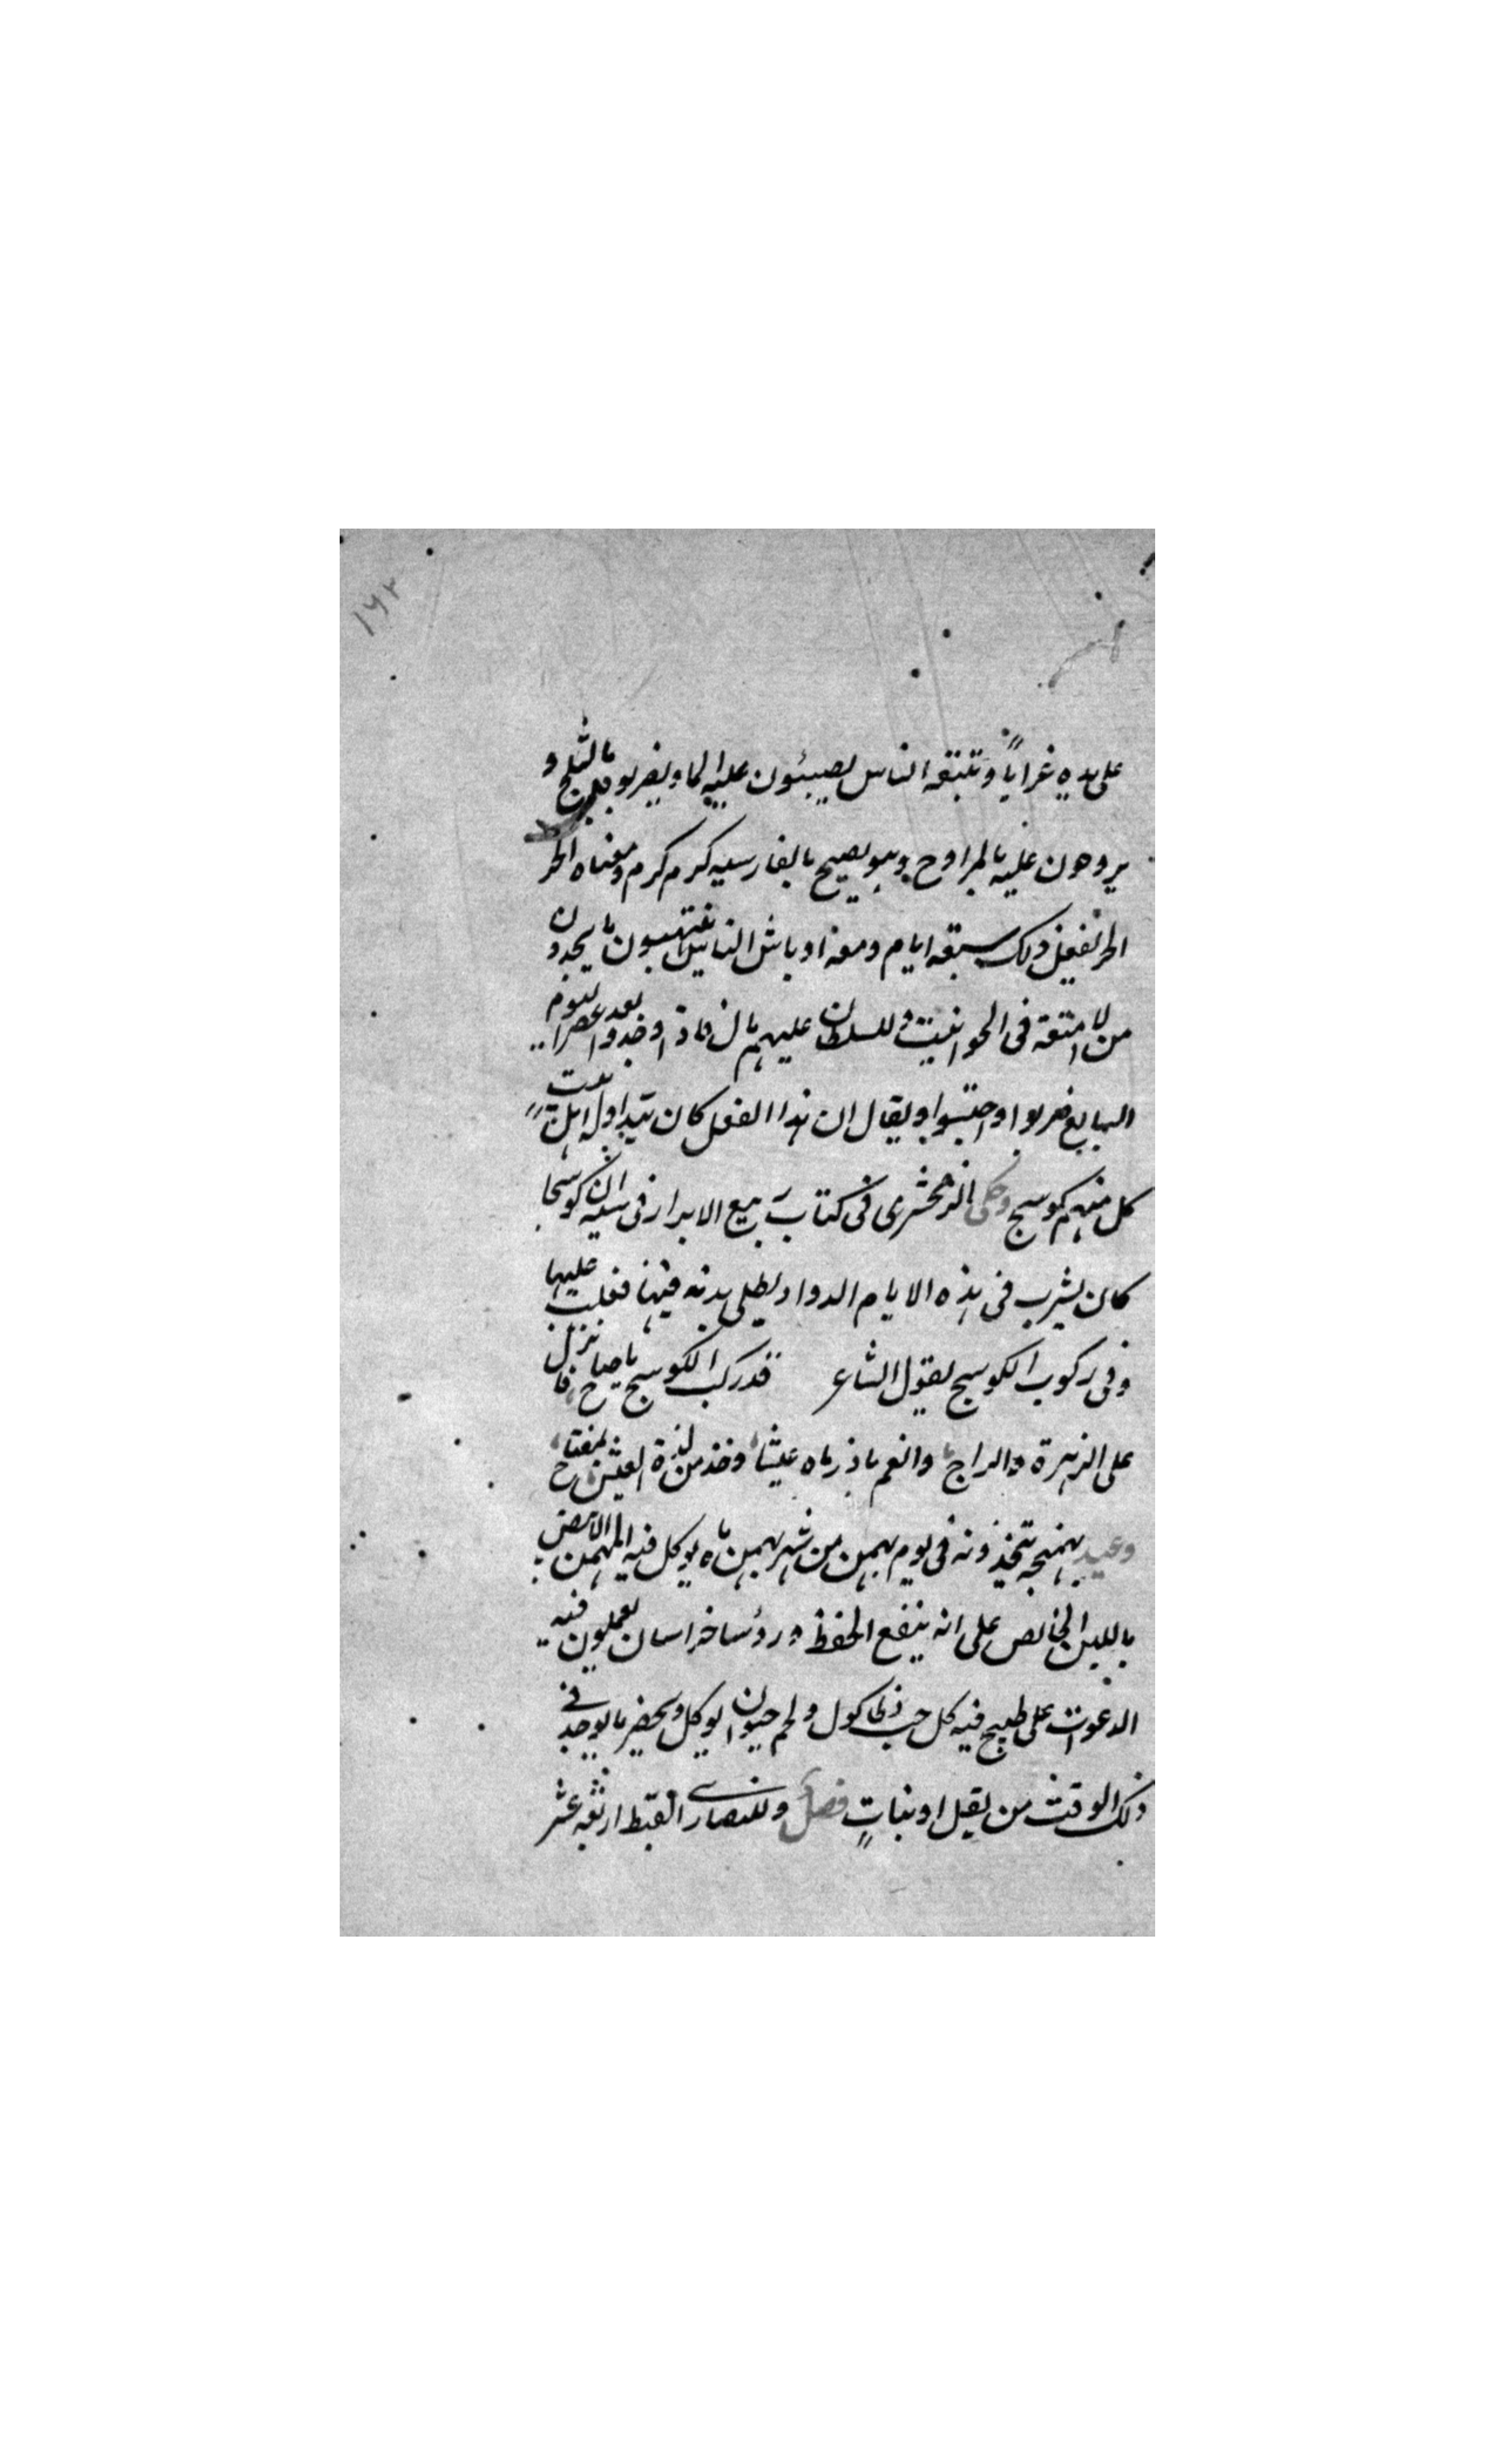 ١٦٢
على يده غرابا وتتبعه الناس يصبئون عليه الماء ويضربو بالثلج و
يروحون عليه بالمراوح وهو يصيح بالفارسيه كرم كرم ومعناه الحر
الحر يفعل ذلك سبعه ايام ومعه اوباش الناس ينتهبون ما يجدون
من الامتعه فى الحوانيت وللسلطان عليهم مال فاذا وجدوا بعد عصر اليوم
السابع ضربوا وحبسوا ويقال ان هذا الفعل كان يتداوله اهل بيت
كل منهم كوسج وحكى الزمخشرى فى كتاب ربيع الابرار فى سيه ان كوسجا
كان يشرب فى هذه الايام الدوا ويطلى بدنه فيها فغلبت عليها
وفى ركوب الكوسج يقول الشاعر قد ركب الكوسج يا صاح فانزل
على الزهرة والراح وانعم باذرماه عيشا وخذ من لذة العيش بمفتاح
وعيد بهمنجه يتخذونه فى يوم بهمن من شهر بهمن ماه يوكل فيه البهمن الابيض
باللبن الخالص على انه ينفع الحفظ ورؤسا خراسان يعملون فيه
الدعوات على طبيخ فيه كل حب ماكول ولحم حيوان يوكل ويحضر ما يوجد فى
ذلك الوقت من بقل او نبات فصل وللنصارى القبط اربعه عشر